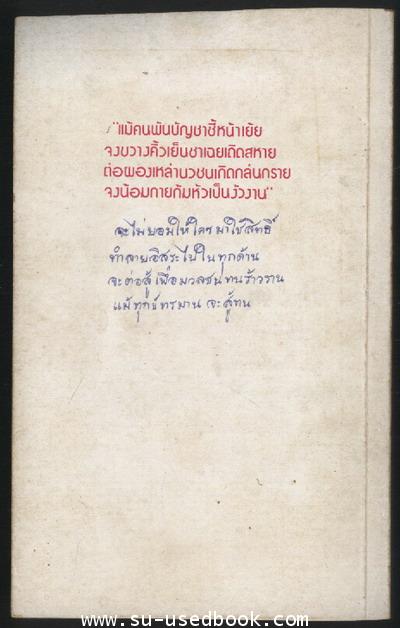 "แม้คนพันบัญชาชี้หน้าเย้ย
จงขวางคิ้วเย็นชาเฉยเถิดสหาย
ต่อผองเหล่านวชนเกิดกล่นกราย
จงน้อมกายก้มหัวเป็นงัวงาน"
จะไม่ยอมให้ใครมาใช้สิทธิ์
ทำลายอิสระไปในทุกด้าน
จะต่อสู้เพื่อมวลชนทนร้าวราน
แม้ทุกข์ทรมาน จะสู้ทน
www.su-usedbook.com